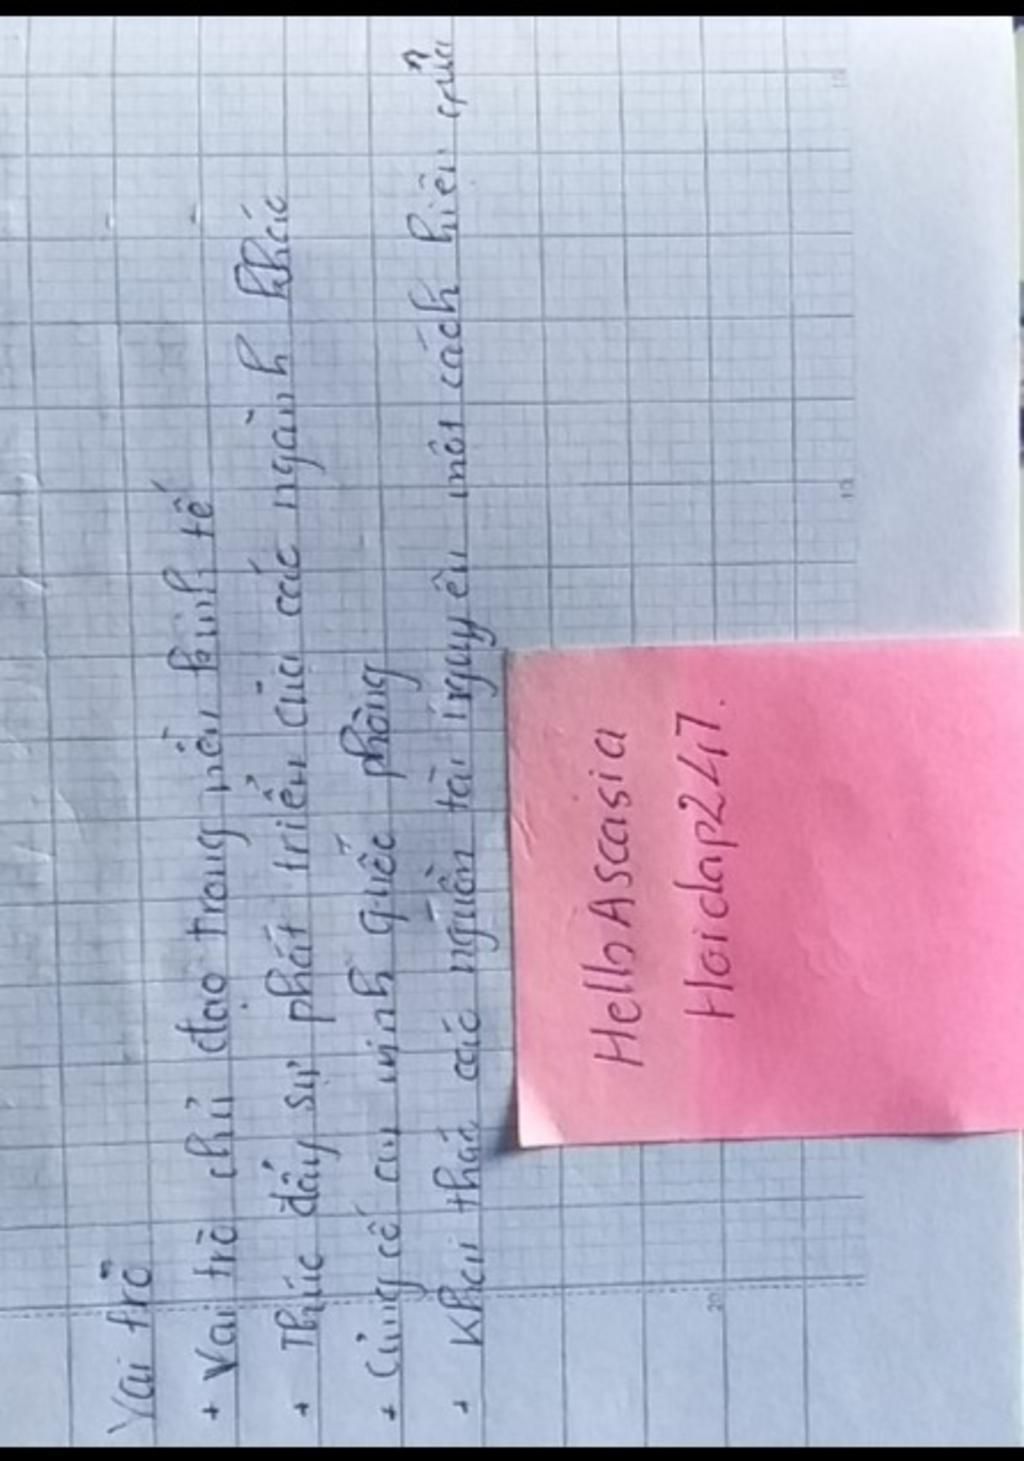 Vai trò
+ Vai trò chủ đạo trong nền kinh tế
+ Thúc đẩy sự phát triển của các ngành khác
+ Củng cố an ninh quốc phòng
+ Khai thá các nguồn tài nguyên một cách hiệu quả
HelloAscasia
Hoidap247.
20
10